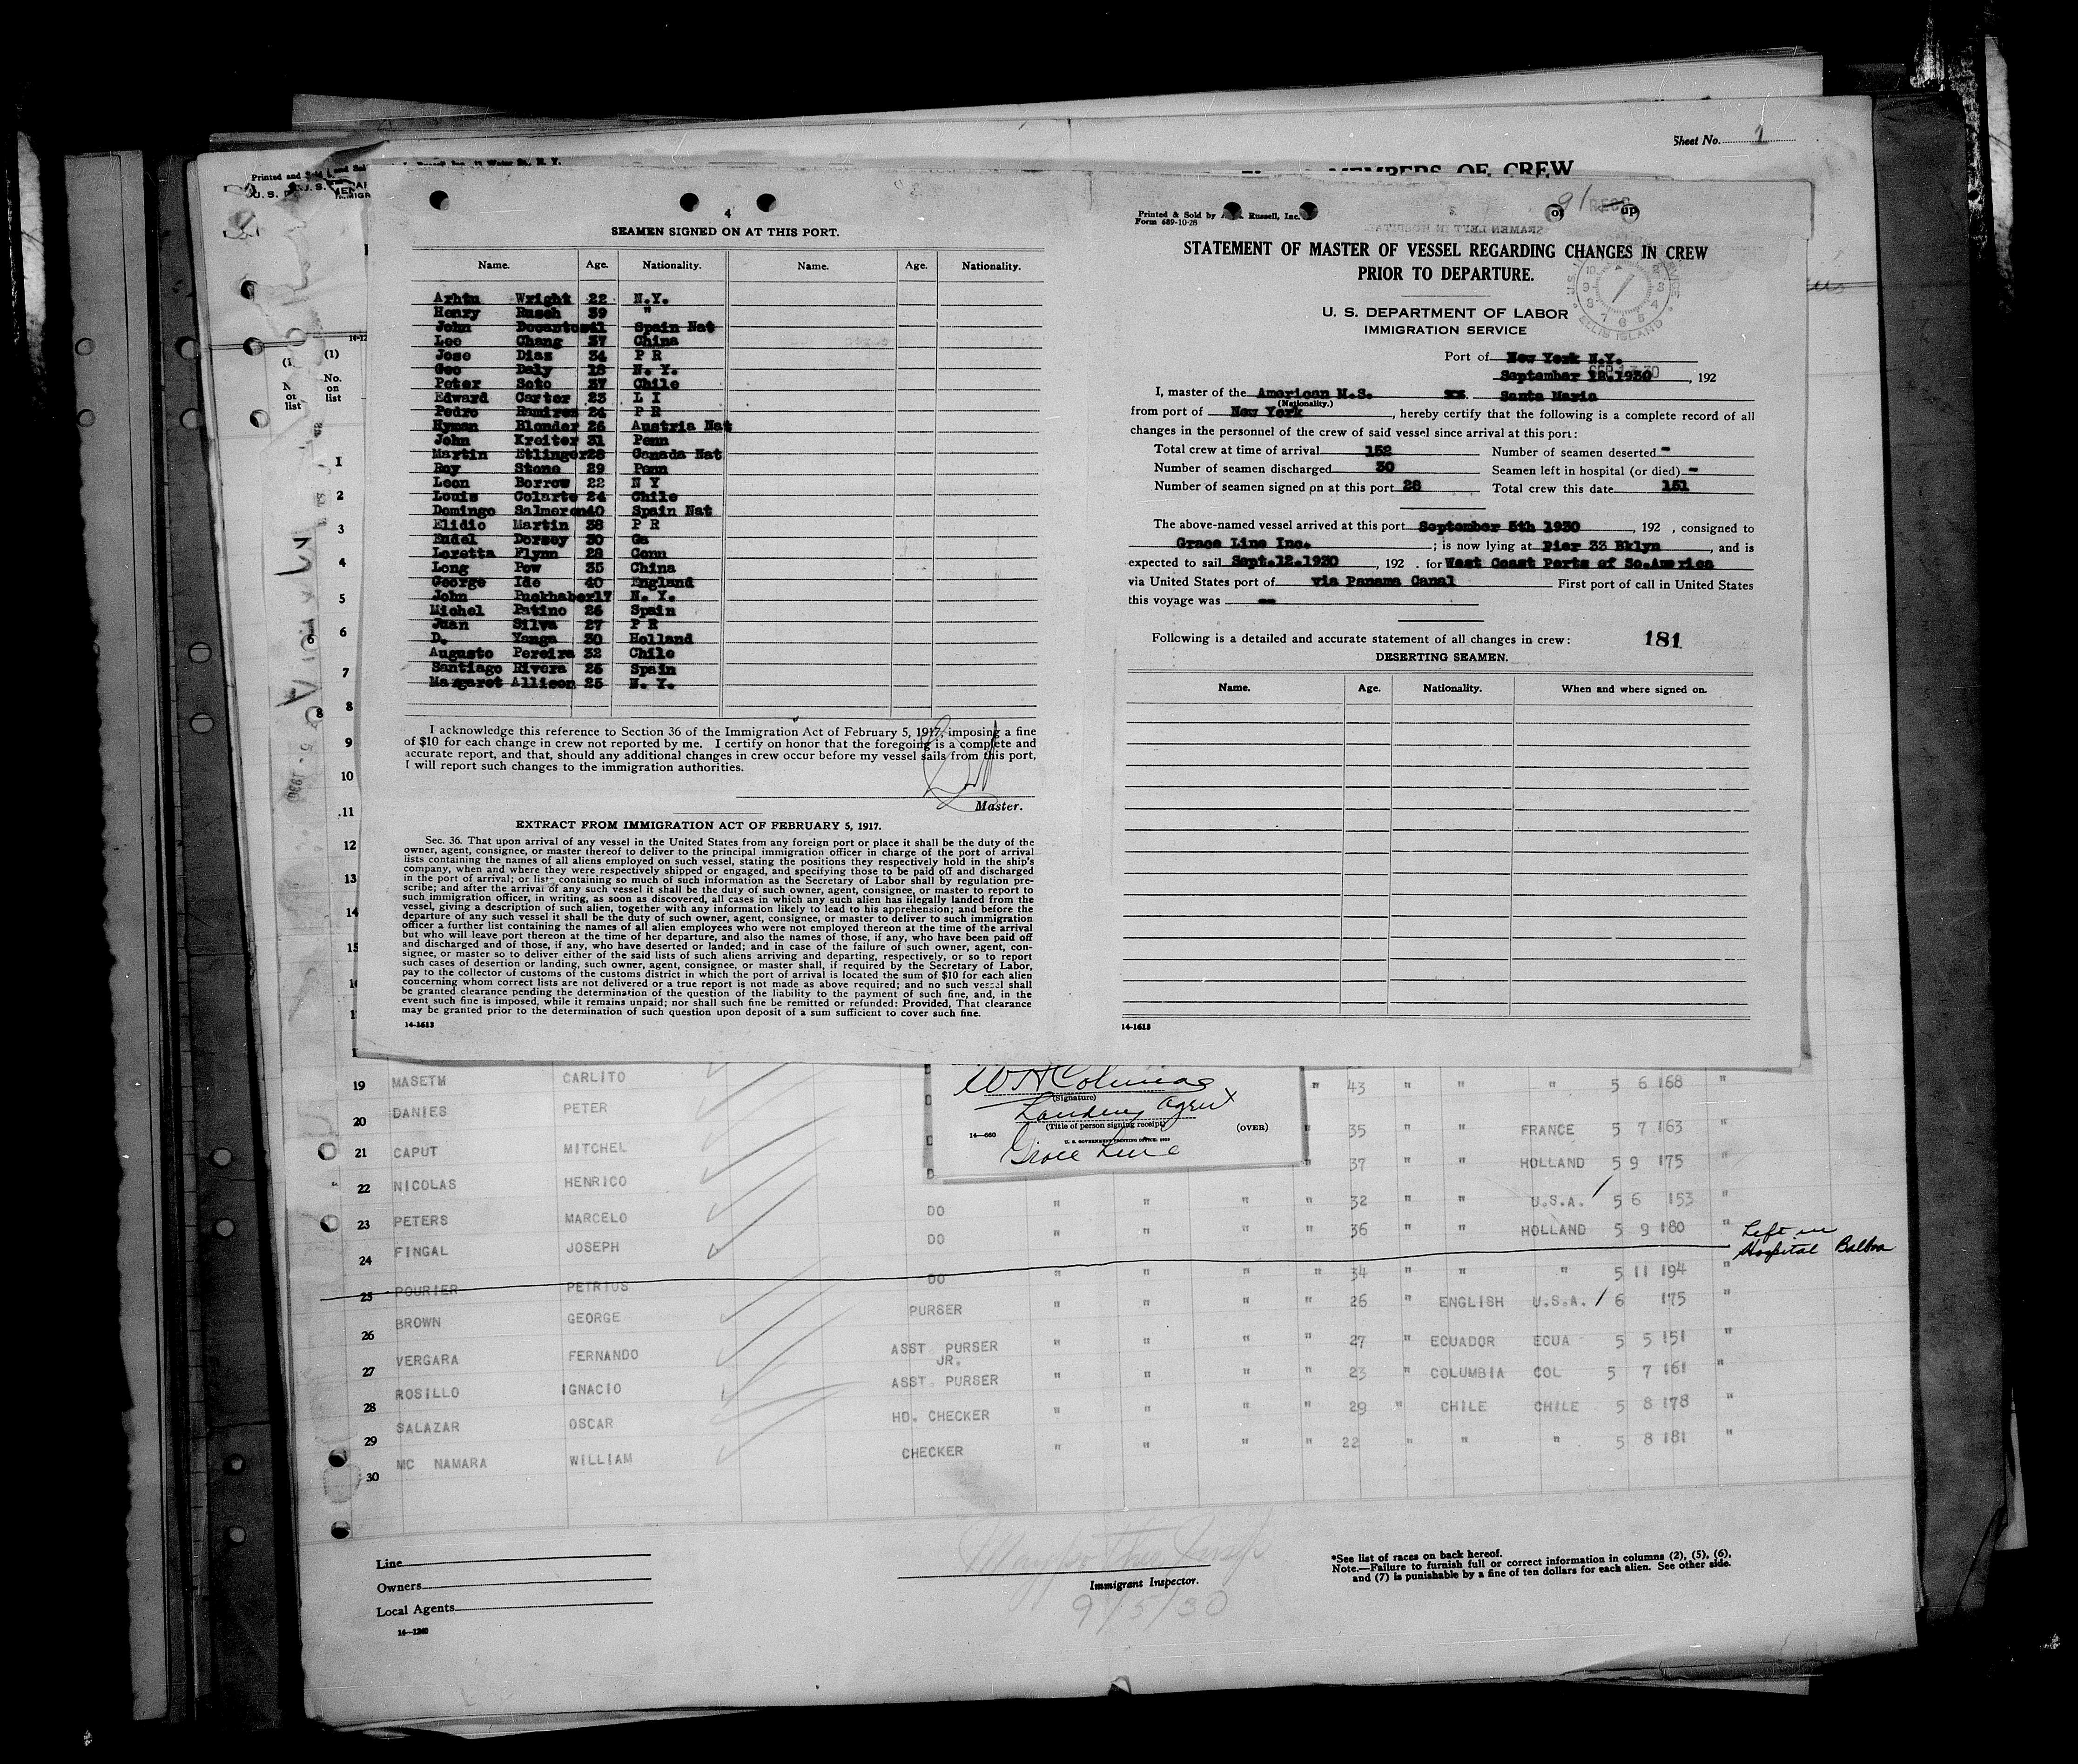 Sheet No. 1
MEMBERS OF CREW
Printed and Sold
4
SEAMEN SIGNED ON AT THIS PORT.
Name. Age. Nationality. Name. Age. Nationality.
Wright 22 N.Y.
Henry Rusch 39 "
John 41 Spain Nat
Lee Chang 37 China
Jose Diaz 34 P R
Geo Daly 18 N. Y.
Peter Soto 37 Chile
Edward Carter 23 L I
Pedro Ramires 24 P R
Hyman Blonder 26 Austria Nat
John Kreiter 31 Penn
Martin Etlinger28 Canada Nat
Roy Stone 29 Penn
Leon Borrow 22 N Y
Louis Colarte 24 Chile
Domingo Salmeron40 Spain Nat
Elidio Martin 38 P R
Eudel Dorsey 30 Ga
Loretta Flynn 28 Conn
Long Pow 35 China
George Ide 40 England
John Puckhaber17 N. Y.
Michel Patino 26 Spain
Juan Silva 27 P R
D. Yanga 30 Holland
Augusto Pereira 32 Chile
Santiago Rivera 26 Spain
Margaret Allison 25 N. Y.
I acknowledge this reference to Section 36 of the Immigration Act of February 5, 1917, imposing a fine
of $10 for each change in crew not reported by me. I certify on honor that the foregoing is a complete and
accurate report, and that, should any additional changes in crew occur before my vessel sails from this port,
I will report such changes to the immigration authorities.
Master.
EXTRACT FROM IMMIGRATION ACT OF FEBRUARY 5, 1917.
Sec. 36. That upon arrival of any vessel in the United States from any foreign port or place it shall be the duty of the
owner, agent, consignee, or master thereof to deliver to the principal immigration officer in charge of the port of arrival
lists containing the names of all aliens employed on such vessel, stating the positions they respectively hold in the ship's
company, when and where they were respectively shipped or engaged, and specifying those to be paid off and discharged
in the port of arrival; or lists containing so much of such information as the Secretary of Labor shall by regulation pre-
scribe; and after the arrival of any such vessel it shall be the duty of such owner, agent, consignee, or master to report to
such immigration officer, in writing, as soon as discovered, all cases in which any such alien has illegally landed from the
vessel, giving a description of such alien, together with any information likely to lead to his apprehension; and before the
departure of any such vessel it shall be the duty of such owner, agent, consignee, or master to deliver to such immigration
officer a further list containing the names of all alien employees who were not employed thereon at the time of the arrival
but who will leave port thereon at the time of her departure, and also the names of those, if any, who have been paid off
and discharged and of those, if any, who have deserted or landed; and in case of the failure of such owner, agent, con-
signee, or master so to deliver either of the said lists of such aliens arriving and departing, respectively, or so to report
such cases of desertion or landing, such owner, agent, consignee, or master shall, if required by the Secretary of Labor,
pay to the collector of customs of the customs district in which the port of arrival is located the sum of $10 for each alien
concerning whom correct lists are not delivered or a true report is not made as above required; and no such vessel shall
be granted clearance pending the determination of the question of the liability to the payment of such fine, and, in the
event such fine is imposed, while it remains unpaid; nor shall such fine be remitted or refunded: Provided, That clearance
may be granted prior to the determination of such question upon deposit of a sum sufficient to cover such fine.
14-1613
Printed & Sold by Russell, Inc.
Form 689-10-28
STATEMENT OF MASTER OF VESSEL REGARDING CHANGES IN CREW
PRIOR TO DEPARTURE.
U. S. DEPARTMENT OF LABOR
IMMIGRATION SERVICE
ELLIS ISLAND
Port of New York N.Y.
September 12.1930, 192
I, master of the American M.S. Santa Maria
(Nationality.)
from port of New York, hereby certify that the following is a complete record of all
changes in the personnel of the crew of said vessel since arrival at this port:
Total crew at time of arrival 152 Number of seamen deserted -
Number of seamen discharged 30 Seamen left in hospital (or died) -
Number of seamen signed on at this port 28 Total crew this date 151
The above-named vessel arrived at this port September 5th 1930, 192 , consigned to
Grace Line Inc. ; is now lying at Pier 33 Bklyn, and is
expected to sail Sept.12.1930, 192 . for West Coast Ports of So.America
via United States port of via Panama Canal First port of call in United States
this voyage was --
Following is a detailed and accurate statement of all changes in crew: 181
DESERTING SEAMEN.
Name. Age. Nationality. When and where signed on.
14-1613
(1)
No.
on
list
1
2
3
4
5
6
7
8
9
10
11
12
13
14
15
(Signature)
Landing Agent
(Title of person signing receipt)
14-660 (OVER)
U. S. GOVERNMENT PRINTING OFFICE
Grace Line
19 MASETH CARLITO " 43 " " " 5 6 168 "
20 DANIES PETER " 35 " " FRANCE 5 7 163 "
21 CAPUT MITCHEL " 37 " " HOLLAND 5 9 175 "
22 NICOLAS HENRICO DO " " " " 32 " " U.S.A. 5 6 153 "
23 PETERS MARCELO DO " " " " 36 " " HOLLAND 5 9 180 "
24 FINGAL JOSEPH DO " " " " 34 " " " 5 11 194 "
Left in
Hospital Balboa
25 POURIER PETRIUS
26 BROWN GEORGE PURSER " " " " 26 " ENGLISH U.S.A. 6 175 "
27 VERGARA FERNANDO ASST PURSER " " " " 27 " ECUADOR ECUA 5 5 151 "
JR.
28 ROSILLO IGNACIO ASST. PURSER " " " " 23 " COLUMBIA COL 5 7 161 "
29 SALAZAR OSCAR HD. CHECKER " " " " 29 " CHILE CHILE 5 8 178 "
30 MC NAMARA WILLIAM CHECKER " " " " 22 " " " 5 8 181 "
Line
Owners
Local Agents
14-1240
Immigrant Inspector.
9/5/30
*See list of races on back hereof.
Note.—Failure to furnish full or correct information in columns (2), (5), (6),
and (7) is punishable by a fine of ten dollars for each alien. See other side.